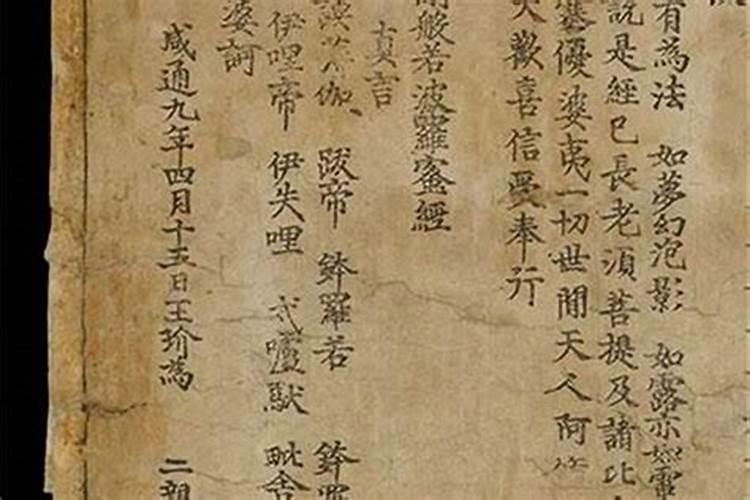 有為法 如夢幻泡影 如露亦如電
說是經已長老須菩提及諸比
塞優婆夷一切世間天人阿
大歡喜信受奉行
般若波羅蜜經
真言
跋帝 鉢羅若 鉢羅
伊哩帝 伊失哩 式嚧馱 毗舍
婆訶
咸通九年四月十五日王玠為 二親